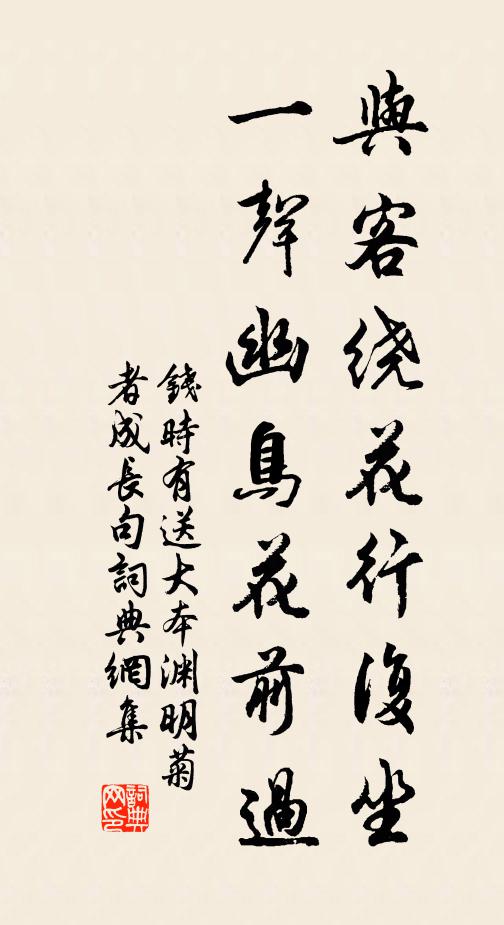 與客绕花行復坐
一聲幽鳥花前過
錢時有送大本渊明菊
者成長句詞典網集
詞典
网印